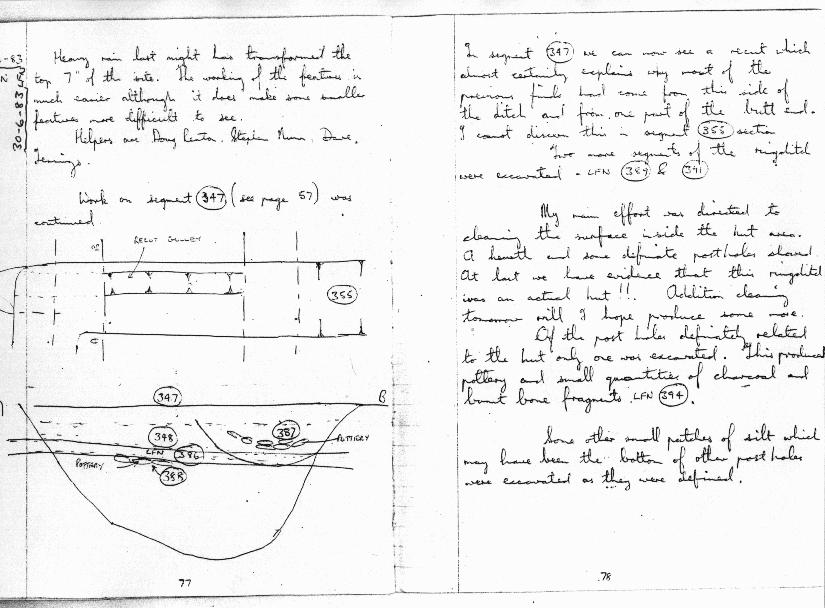 30-6-83
Heavy rain last night has transformed the
top 7" of the site. The working of the features is
much easier although it does make some smaller
features more difficult to see.
Helpers are Doug Stephen Dave
Jennings.
Work on segment 347 (see page 57) was
continued
RECUT GULLEY
355
347
B
387
348
POTTERY
LFN 386
POTTERY
388
77
In segment 347 we can now see a recut which
almost certainly explains why most of the
previous finds had come from this side of
the ditch and from one part of the butt end.
I cannot discern this in segment 355 section
Two more segments of the ringditch
were excavated - LFN 389 & 391
My main effort was directed to
cleaning the surface inside the hut area.
A hearth and some definate postholes showed.
At last we have evidence that this ringditch
was an actual hut!!. Addition cleaning
tomorrow will I hope produce some more.
Of the post holes definately related
to the hut only one was excavated. This produced
pottery and small quantities of charcoal and
burnt bone fragments. LFN 394.
Some other small patches of silt which
may have been the bottom of other post holes
were excavated as they were defined.
78